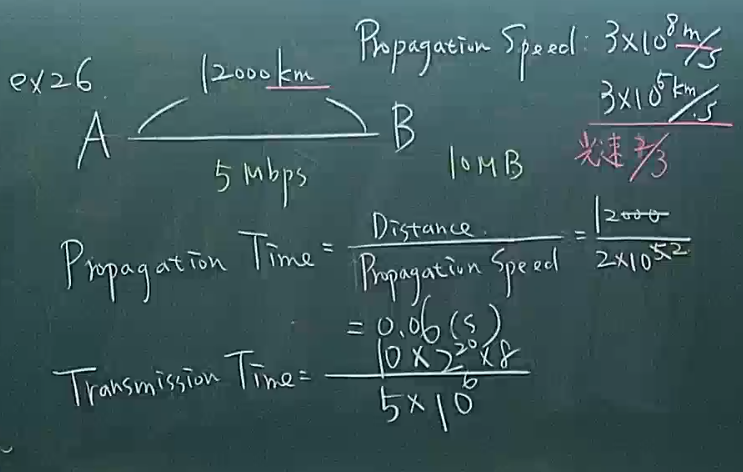 Propagation Speed: 3×10⁸ m/s
ex26 12000km 3×10⁵ km/s
A B 光速 2/3
5 Mbps 10MB
Propagation Time = Distance / Propagation Speed = 12000 / 2×10⁵ 2
= 0.06 (s)
Transmission Time = 10×2²⁰×8 / 5×10⁶